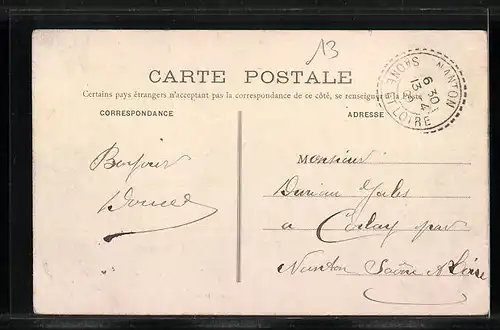 13
CARTE POSTALE
Certains pays étrangers n'acceptant pas la correspondance de ce côté, se renseigner à la Poste
CORRESPONDANCE
ADRESSE
NANTON
6 30
13 4
SAÔNE ET LOIRE
Bonjour
Monsieur
a par
Nanton Saône et Loire